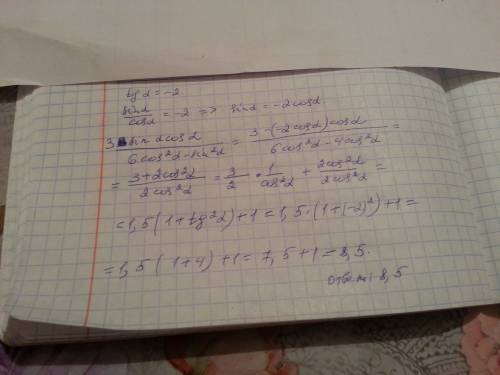 tg α = -2.
sin α / cos α = -2 => sin α = -2cos α.
3 - sin α cos α / 6cos²α - sin²α = 3 - (-2cos α) cos α / 6cos²α - 4cos²α =
= 3 + 2cos²α / 2cos²α = 3/2 * 1/cos²α + 2cos²α / 2cos²α =
= 1,5 (1 + tg²α) + 1 = 1,5 · (1 + (-2)²) + 1 =
= 1,5 (1 + 4) + 1 = 7,5 + 1 = 8,5.
Ответ: 8,5